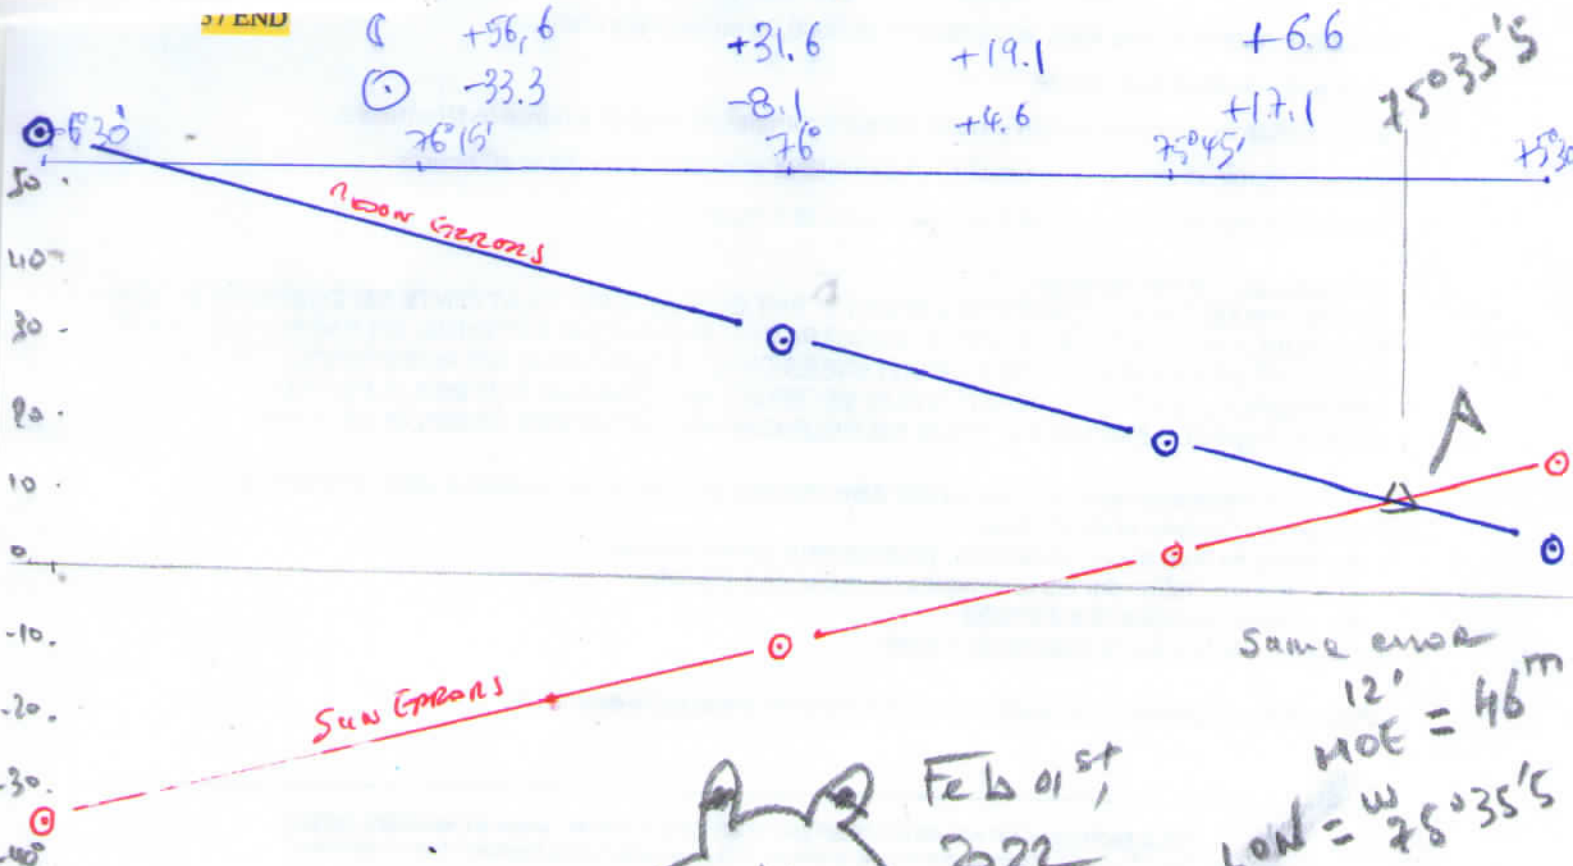 37 END
☾ +56,6 +31.6 +19.1 +6.6
☉ -33.3 -8.1 +4.6 +17.1
75°35'5
-6°30' 76°15' 76° 75°45' 75°30
50
40
30
20
10
0
-10
-20
-30
-40
MOON ERRORS
A
SUN ERRORS
Same error
12'
HOE = 46m
LON = W 75°35'5
Feb 01st,
2022